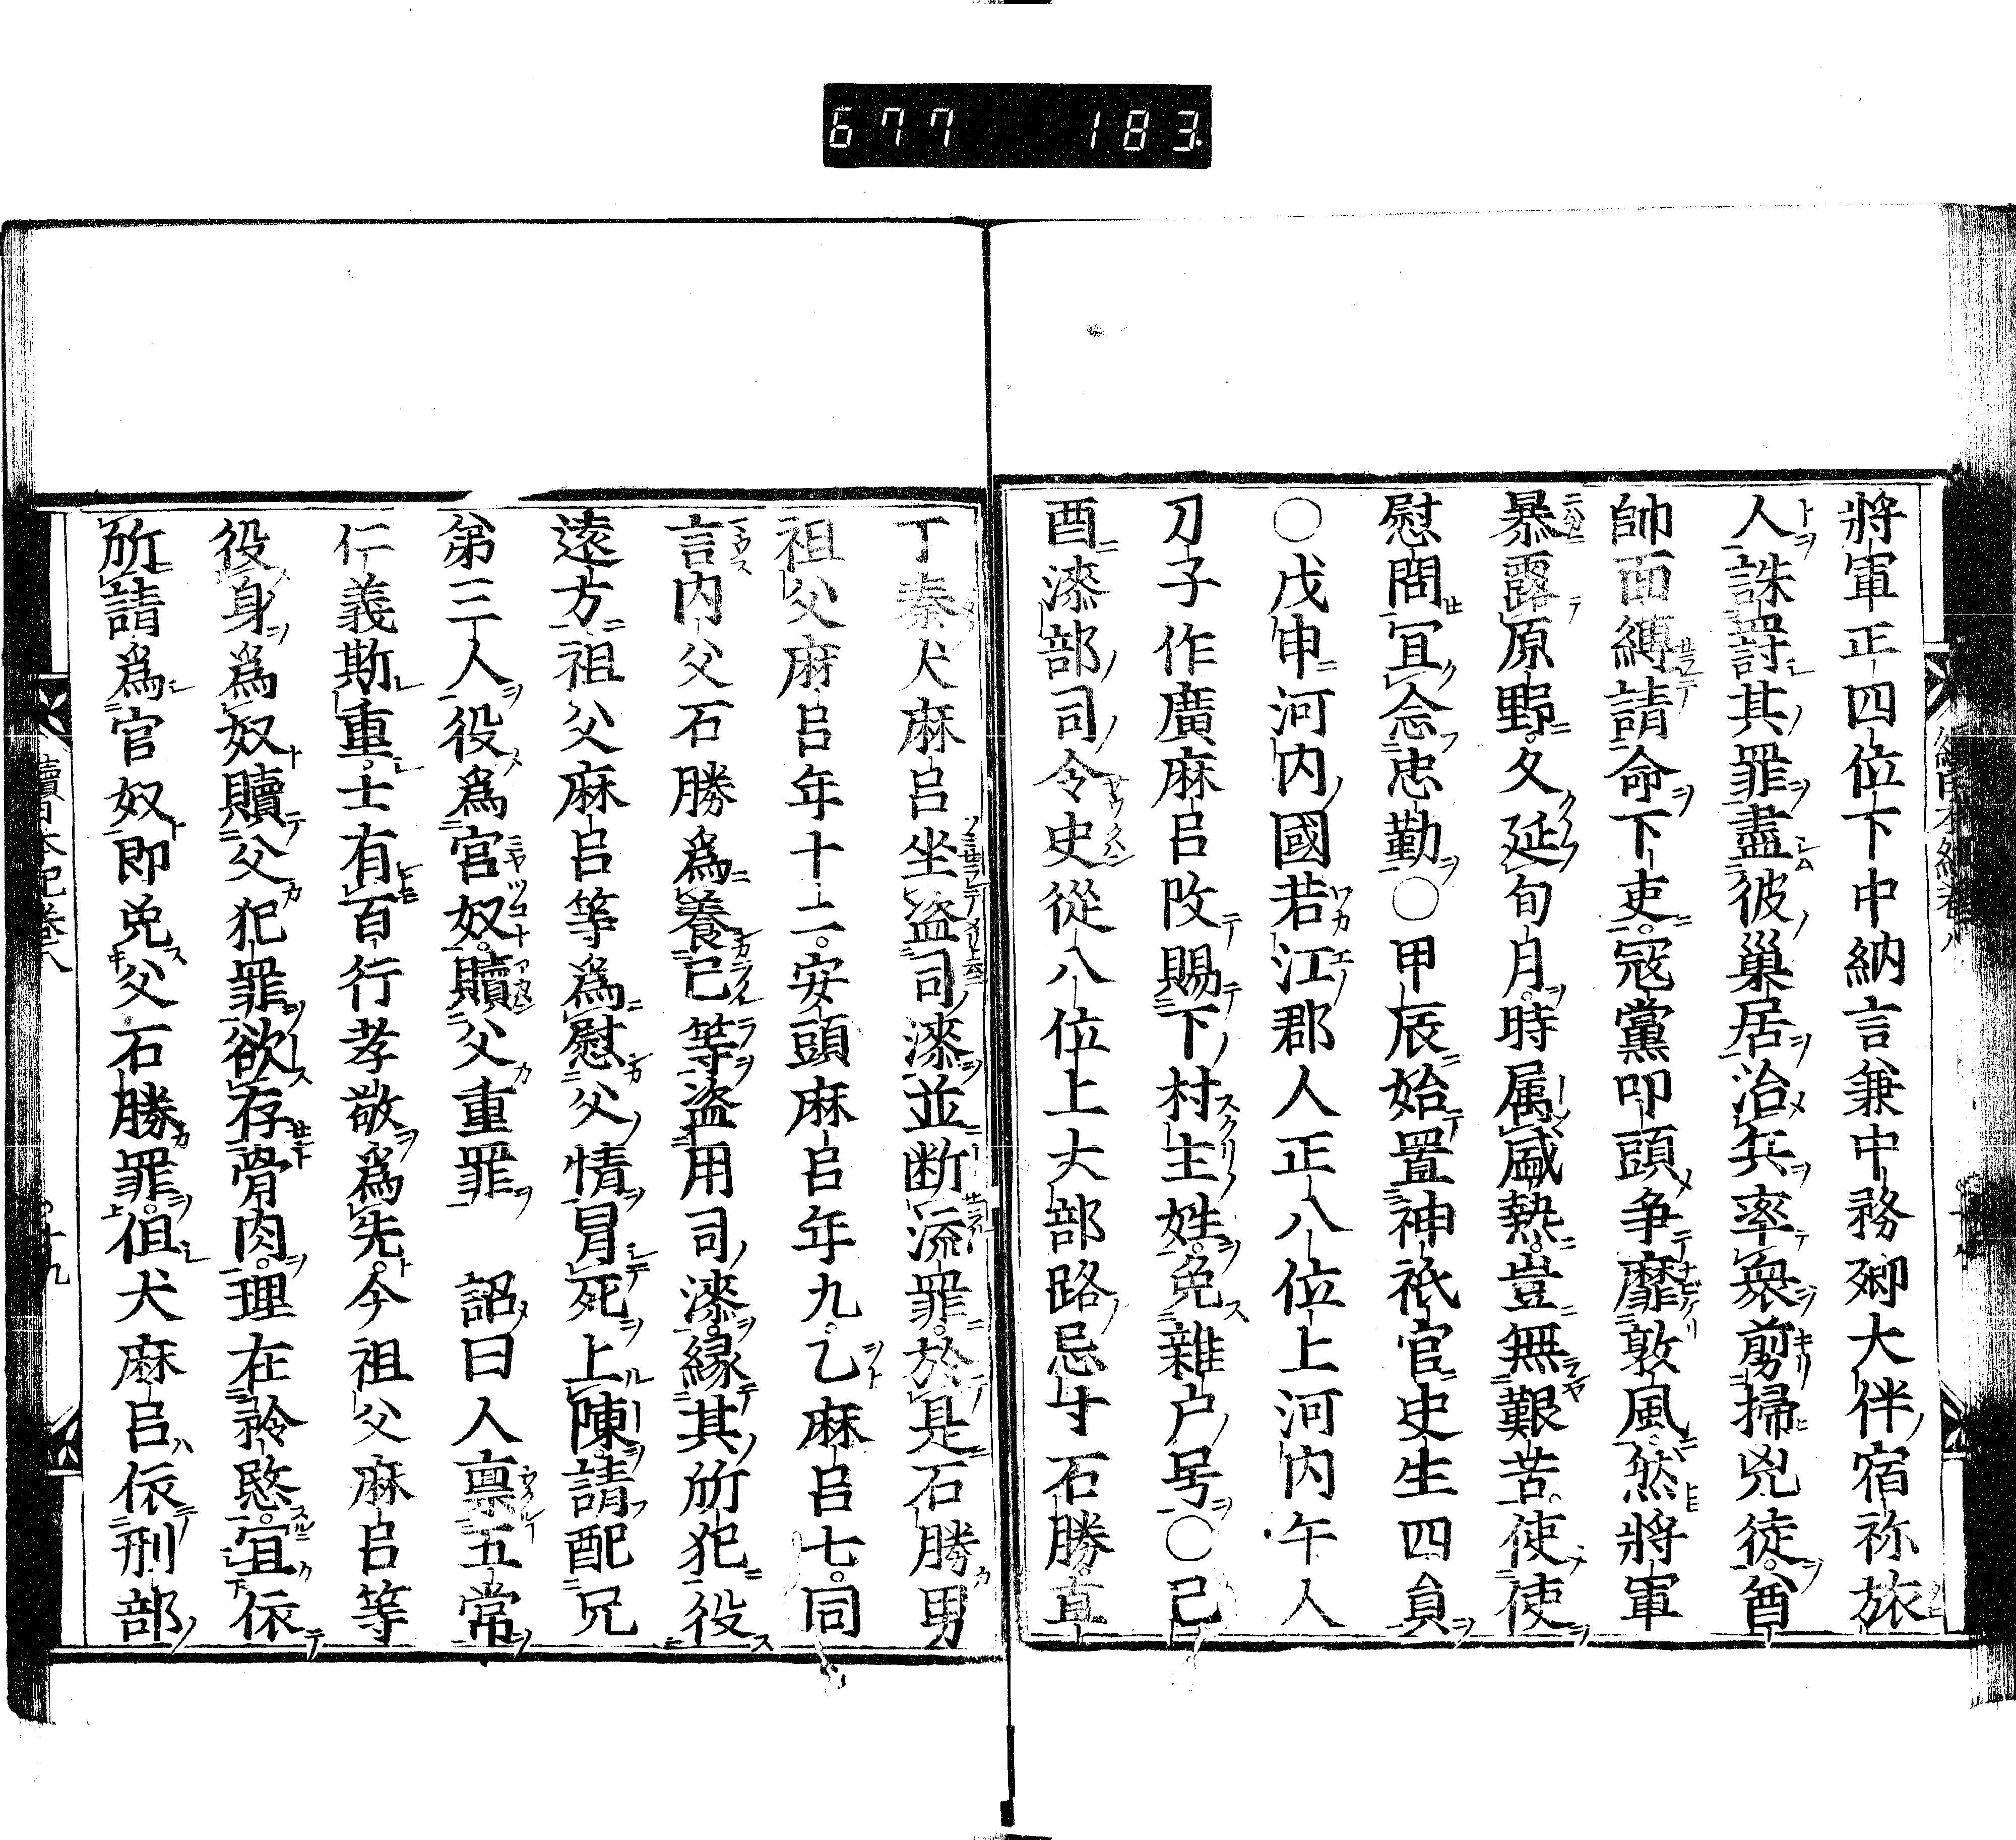 677 183
將軍正四位下中納言兼中務卿大伴宿祢旅
人誅罸其罪盡彼巢居治兵率衆剪掃兇徒酋
帥面縛請命下吏寇黨叩頭争靡敦風然將軍
暴露原野久延旬月時属盛熱豈無艱苦使使
慰問宜念忠勤〇甲辰始置神祇官史生四負
〇戊申河内國若江郡人正八位上河内午人
刀子作廣麻呂改賜下村主姓免雜户号〇己
酉漆部司令史從八位上大部路忌寸石勝直
丁秦犬麻呂坐盗司漆並断流罪於是石勝男
祖父麻呂年十二安頭麻呂年九乙麻呂年七同
言内父石勝為養己等盗用司漆縁其所犯役
遠方祖父麻呂等為慰父情冒死上陳請配兄
弟三人役為官奴贖父重罪 詔曰人禀五常
仁義斯重士有百行孝敬為先今祖父麻呂等
役身為奴贖父犯罪欲存骨肉理在矜愍宜依
所請為官奴即免父石勝罪但犬麻呂依刑部
續日本紀巻八
十九